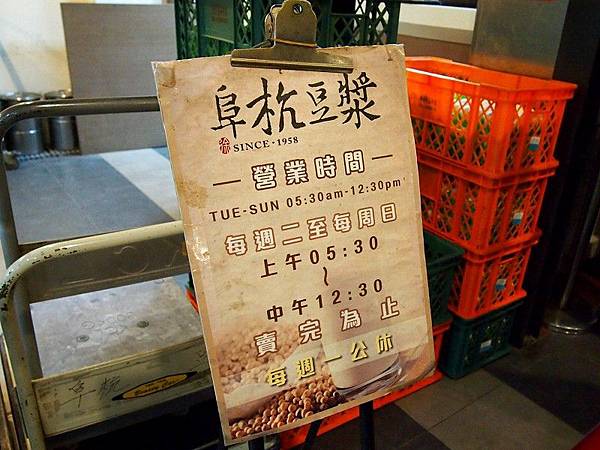 阜杭豆漿
SINCE·1958
營業時間
TUE-SUN 05:30am-12:30pm
每週二至每周日
上午05:30
~
中午12:30
賣完為止
每週一公休